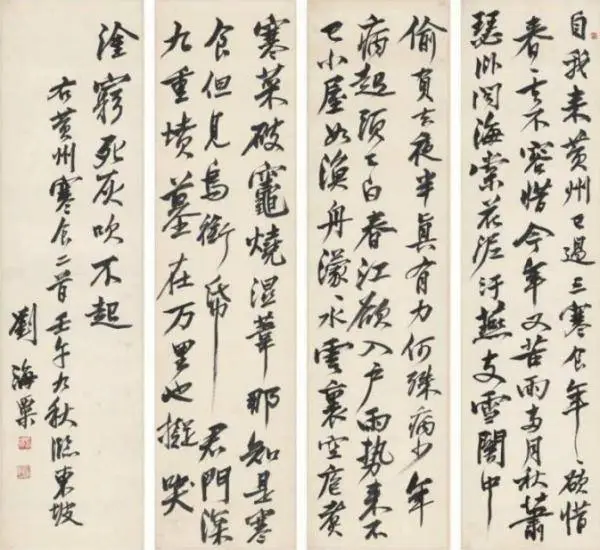 自我来黄州已過三寒食年〻欲惜
春〻去不容惜今年又苦雨兩月秋蕭
瑟卧聞海棠花泥汙燕支雪闇中
偷負去夜半真有力何殊病少年
病起頭已白春江欲入户雨勢来不
已小屋如漁舟濛〻水雲裏空庖煮
寒菜破竈燒湿葦那知是寒
食但見烏銜帋君門深
九重墳墓在万里也擬哭
塗窮死灰吹不起
右黄州寒食二首壬午九秋臨東坡
劉海粟